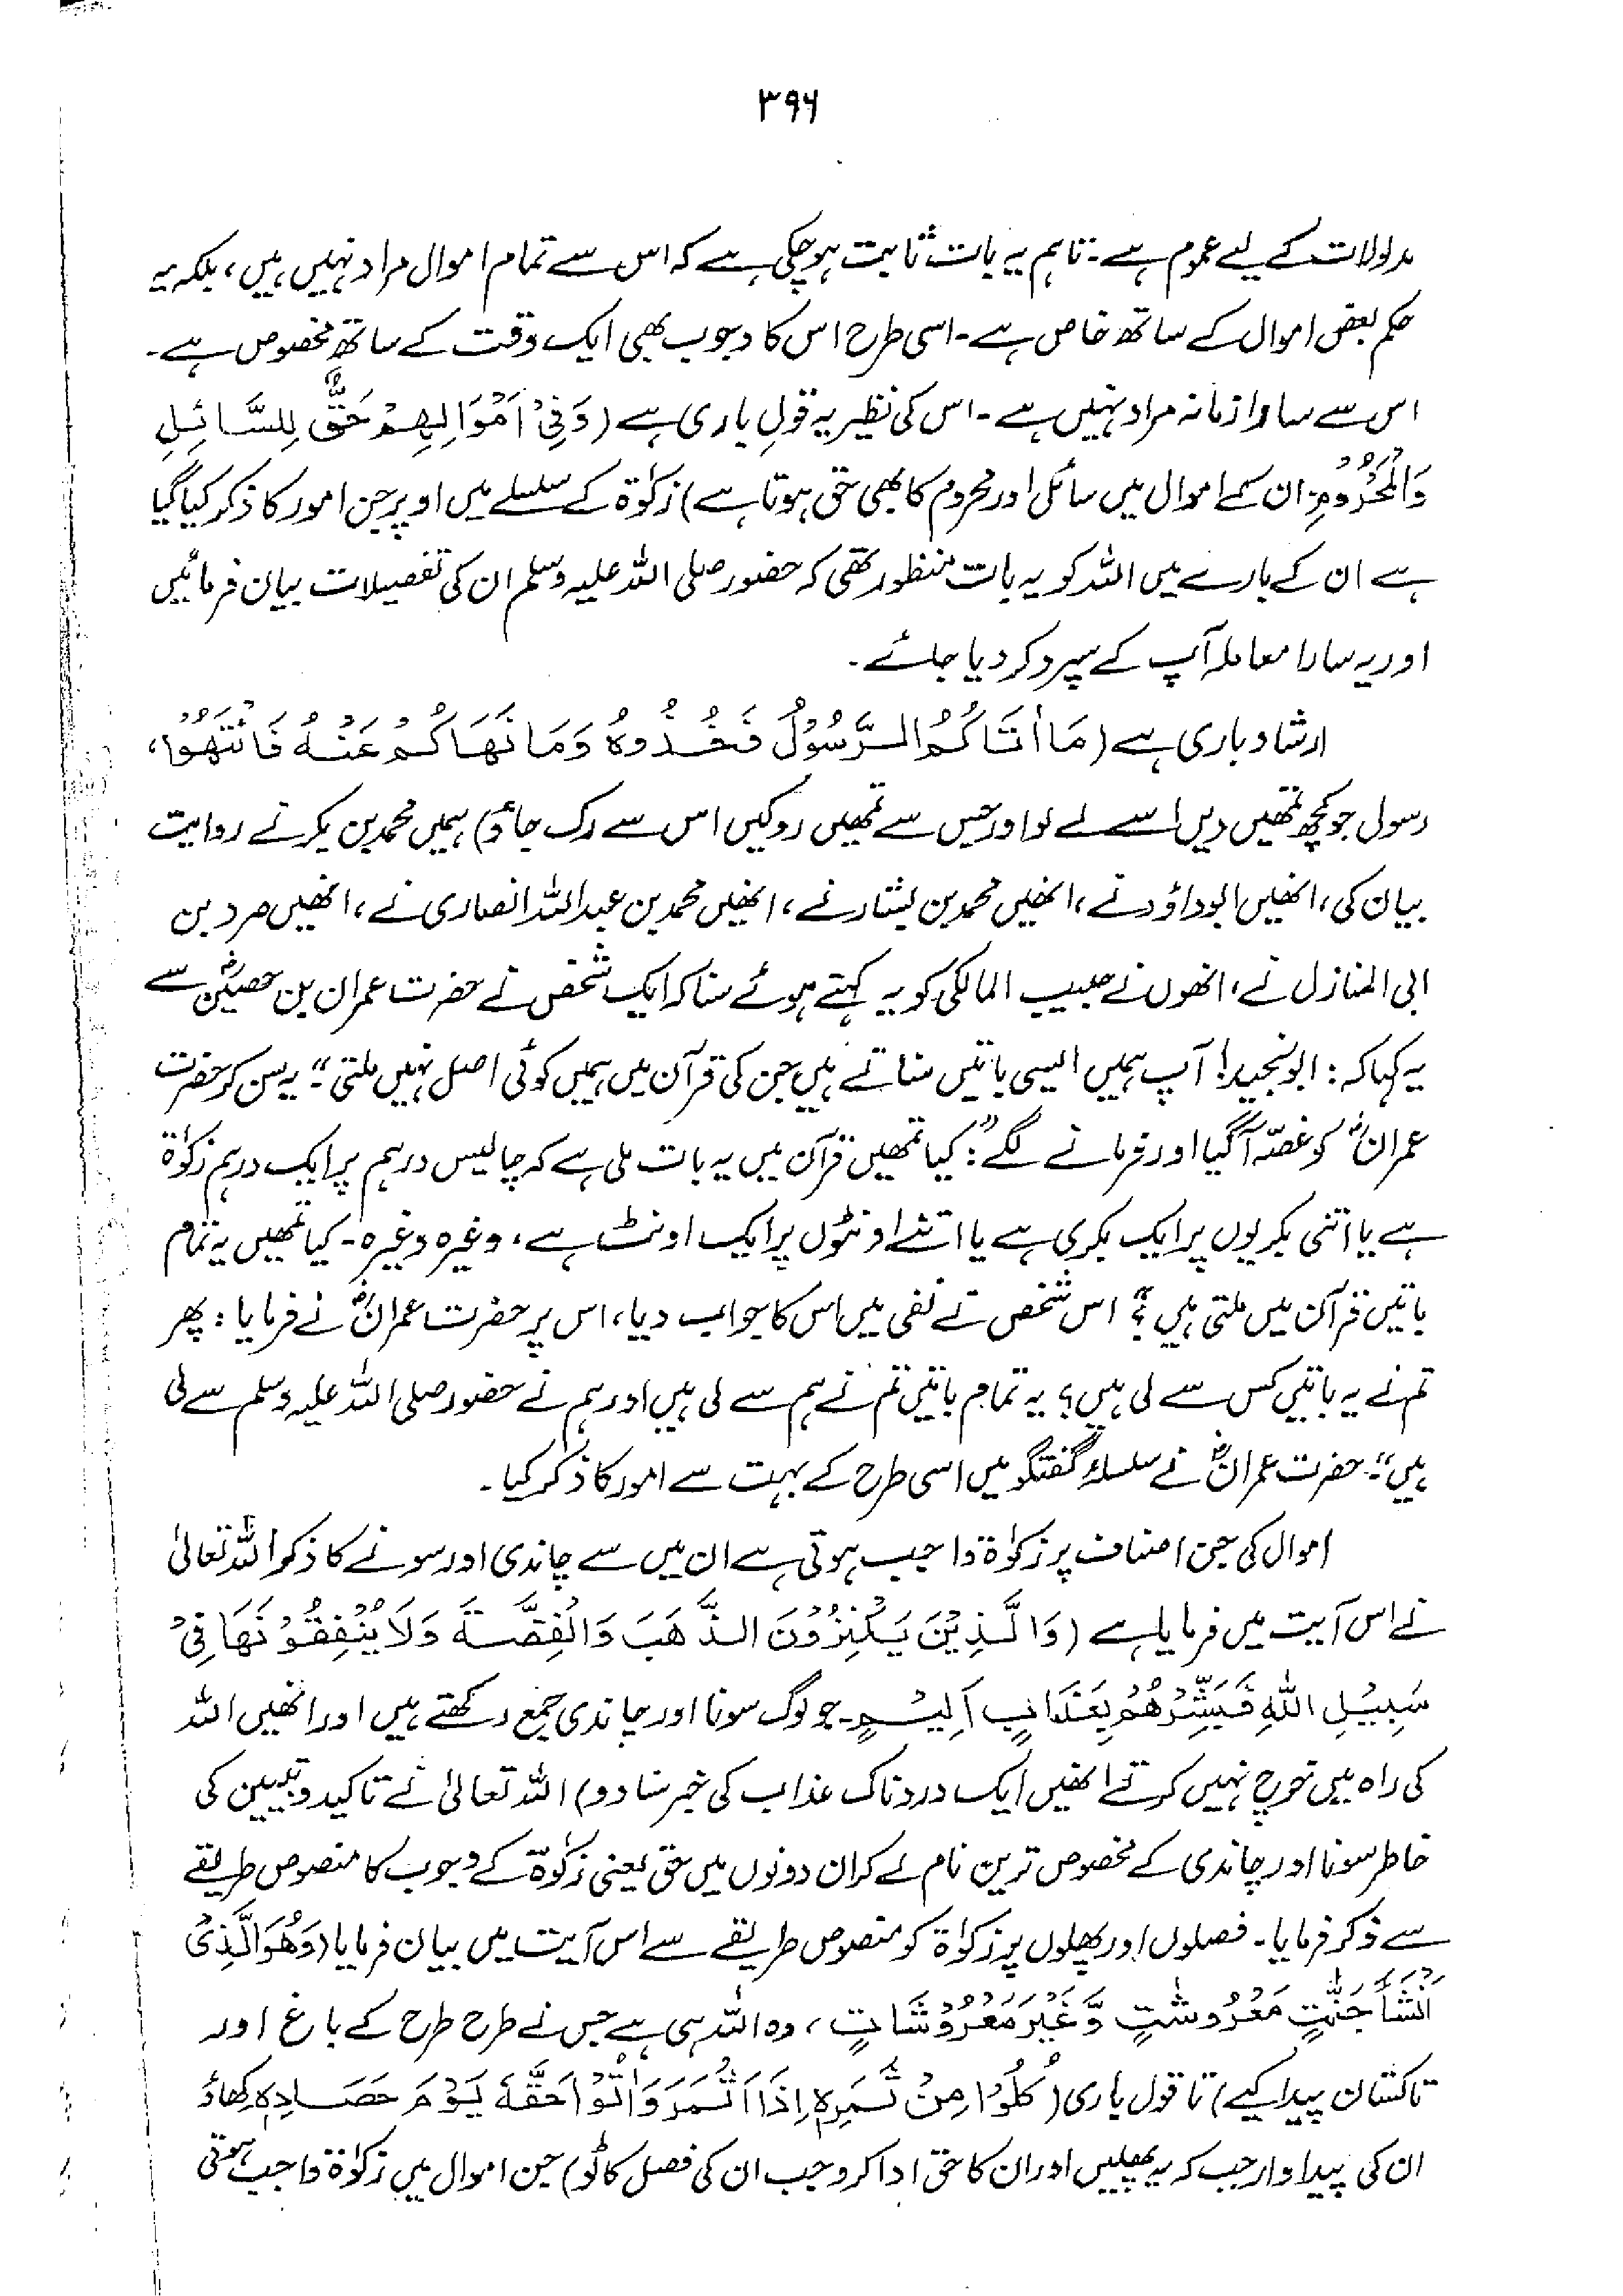 ۳۹۶
مدلولات کے لیے عموم ہے۔ تاہم یہ بات ثابت ہو چکی ہے کہ اس سے تمام اموال مراد نہیں ہیں، بلکہ یہ
حکم بعض اموال کے ساتھ خاص ہے۔ اسی طرح اس کا وجوب بھی ایک وقت کے ساتھ مخصوص ہے۔
اس سے سارا زمانہ مراد نہیں ہے۔ اس کی نظیر یہ قولِ باری ہے (وَفِیْ اَمْوَالِهِمْ حَقٌّ لِلسَّائِلِ
وَالْمَحْرُوْمِ۔ ان کے اموال میں سائل اور محروم کا بھی حق ہوتا ہے) زکوٰۃ کے سلسلے میں اوپر جن امور کا ذکر کیا گیا
ہے ان کے بارے میں اللہ کو یہ بات منظور تھی کہ حضور صلی اللہ علیہ وسلم ان کی تفصیلات بیان فرمائیں
اور یہ سارا معاملہ آپ کے سپرد کر دیا جائے۔
ارشاد باری ہے (مَا أٰتَاكُمُ الرَّسُوْلُ فَخُذُوهُ وَمَا نَهَاكُمْ عَنْهُ فَانْتَهُوْا،
رسول جو کچھ تمھیں دیں اسے لے لو اور جس سے تمھیں روکیں اس سے رک جاؤ) ہمیں محمد بن بکر نے روایت
بیان کی، انھیں ابوداؤد نے، انھیں محمد بن بشار نے، انھیں محمد بن عبداللہ انصاری نے، انھیں صرد بن
ابی المنازل نے، انھوں نے حبیب المالکی کو یہ کہتے ہوئے سنا کہ ایک شخص نے حضرت عمران بن حصینؓ سے
یہ کہا کہ: ابونجید! آپ ہمیں ایسی باتیں سناتے ہیں جن کی قرآن میں ہمیں کوئی اصل نہیں ملتی"۔ یہ سن کر حضرت
عمرانؓ کو غصّہ آ گیا اور فرمانے لگے: "کیا تمھیں قرآن میں یہ بات ملی ہے کہ چالیس درہم پر ایک درہم زکوٰۃ
ہے یا اتنی بکریوں پر ایک بکری ہے یا اتنے اونٹوں پر ایک اونٹ ہے، وغیرہ وغیرہ۔ کیا تمھیں یہ تمام
باتیں قرآن میں ملتی ہیں؟" اس شخص نے نفی میں اس کا جواب دیا، اس پر حضرت عمرانؓ نے فرمایا: پھر
تم نے یہ باتیں کس سے لی ہیں؟ یہ تمام باتیں تم نے ہم سے لی ہیں اور ہم نے حضور صلی اللہ علیہ وسلم سے لی
ہیں"۔ حضرت عمرانؓ نے سلسلۂ گفتگو میں اسی طرح کے بہت سے امور کا ذکر کیا۔
اموال کی جن اصناف پر زکوٰۃ واجب ہوتی ہے ان میں سے چاندی اور سونے کا ذکر اللہ تعالیٰ
نے اس آیت میں فرمایا ہے (وَالَّذِيْنَ يَكْنِزُوْنَ الذَّهَبَ وَالْفِضَّةَ وَلَا يُنْفِقُوْنَهَا فِیْ
سَبِيْلِ اللّٰهِ فَبَشِّرْهُمْ بِعَذَابٍ اَلِيْمٍ۔ جو لوگ سونا اور چاندی جمع رکھتے ہیں اور انھیں اللہ
کی راہ میں خرچ نہیں کرتے انھیں ایک دردناک عذاب کی خبر سنا دو) اللہ تعالیٰ نے تاکید و تبیین کی
خاطر سونا اور چاندی کے مخصوص ترین نام لے کر ان دونوں میں حق یعنی زکوٰۃ کے وجوب کا منصوص طریقے
سے ذکر فرمایا۔ فصلوں اور پھلوں پر زکوٰۃ کو منصوص طریقے سے اس آیت میں بیان فرمایا (وَهُوَ الَّذِیْ
اَنْشَأَ جَنّٰتٍ مَعْرُوشٰتٍ وَّغَيْرَ مَعْرُوْشَاتٍ، وہ اللہ ہی ہے جس نے طرح طرح کے باغ اور
تاکستان پیدا کیے) تا قول باری (كُلُوْا مِنْ ثَمَرِهٖ اِذَا اَثْمَرَ وَاٰتُوْا حَقَّهٗ يَوْمَ حَصَادِهٖ کھاؤ
ان کی پیداوار جب کہ یہ پھلیں اور ان کا حق ادا کرو جب ان کی فصل کاٹو) جن اموال میں زکوٰۃ واجب ہوتی